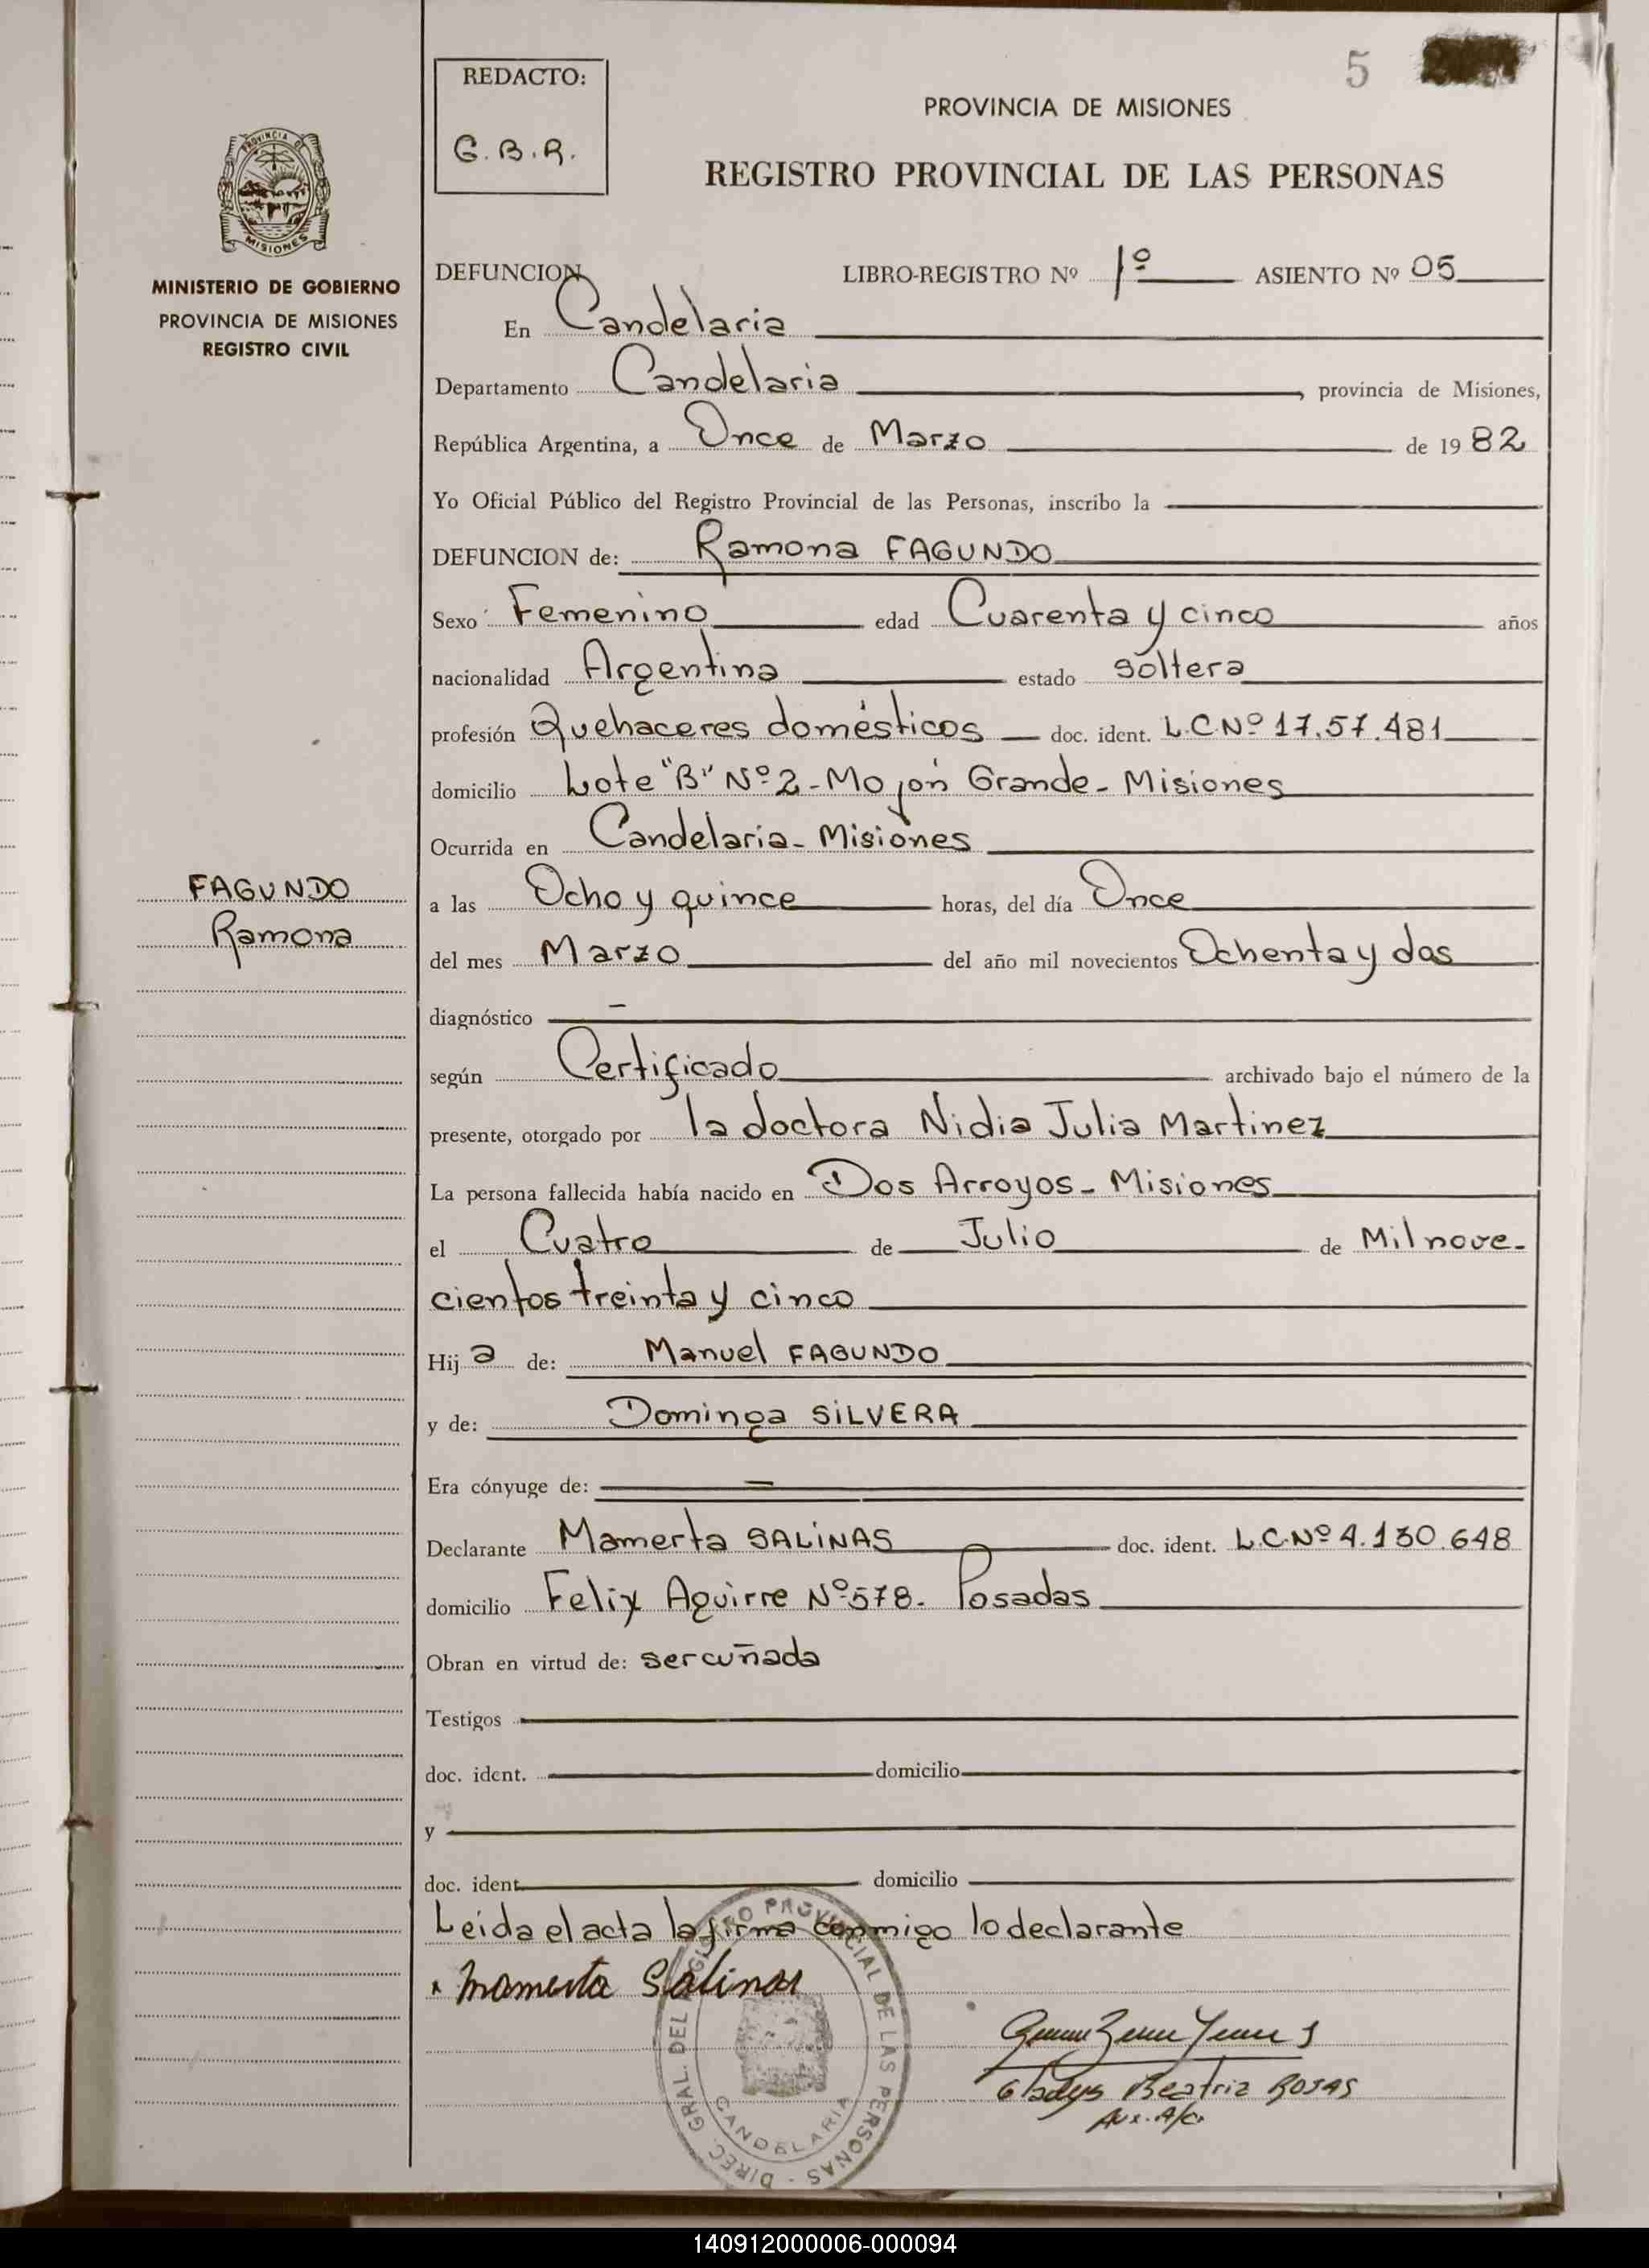 5
REDACTO:
G.B.R.
PROVINCIA DE MISIONES
REGISTRO PROVINCIAL DE LAS PERSONAS
PROVINCIA DE
MISIONES
MINISTERIO DE GOBIERNO
PROVINCIA DE MISIONES
REGISTRO CIVIL
DEFUNCION LIBRO-REGISTRO Nº 1º ASIENTO Nº 05
En Candelaria
Departamento Candelaria, provincia de Misiones,
República Argentina, a Once de Marzo de 1982
Yo Oficial Público del Registro Provincial de las Personas, inscribo la
DEFUNCION de: Ramona FAGUNDO
Sexo Femenino edad Cuarenta y cinco años
nacionalidad Argentina estado soltera
profesión Quehaceres domésticos doc. ident. L.C.Nº 17.57.481
domicilio Lote "B" Nº 2 - Mojón Grande - Misiones
Ocurrida en Candelaria - Misiones
FAGUNDO
Ramona
a las Ocho y quince horas, del día Once
del mes Marzo del año mil novecientos Ochenta y dos
diagnóstico —
según Certificado archivado bajo el número de la
presente, otorgado por la doctora Nidia Julia Martinez
La persona fallecida había nacido en Dos Arroyos - Misiones
el Cuatro de Julio de Mil nove-
cientos treinta y cinco
Hija de: Manuel FAGUNDO
y de: Dominga SILVERA
Era cónyuge de: —
Declarante Mamerta SALINAS doc. ident. L.C.Nº 4.130.648
domicilio Felix Aguirre Nº 578. Posadas
Obran en virtud de: ser cuñada
Testigos
doc. ident. domicilio
y
doc. ident. domicilio
Leida el acta la firma conmigo lo declarante
x Mamerta Salinas
Gladys Beatriz ROSAS
Aux. A/C.
DIREC. GRAL. DEL REGISTRO PROVINCIAL DE LAS PERSONAS -
CANDELARIA
140912000006-000094